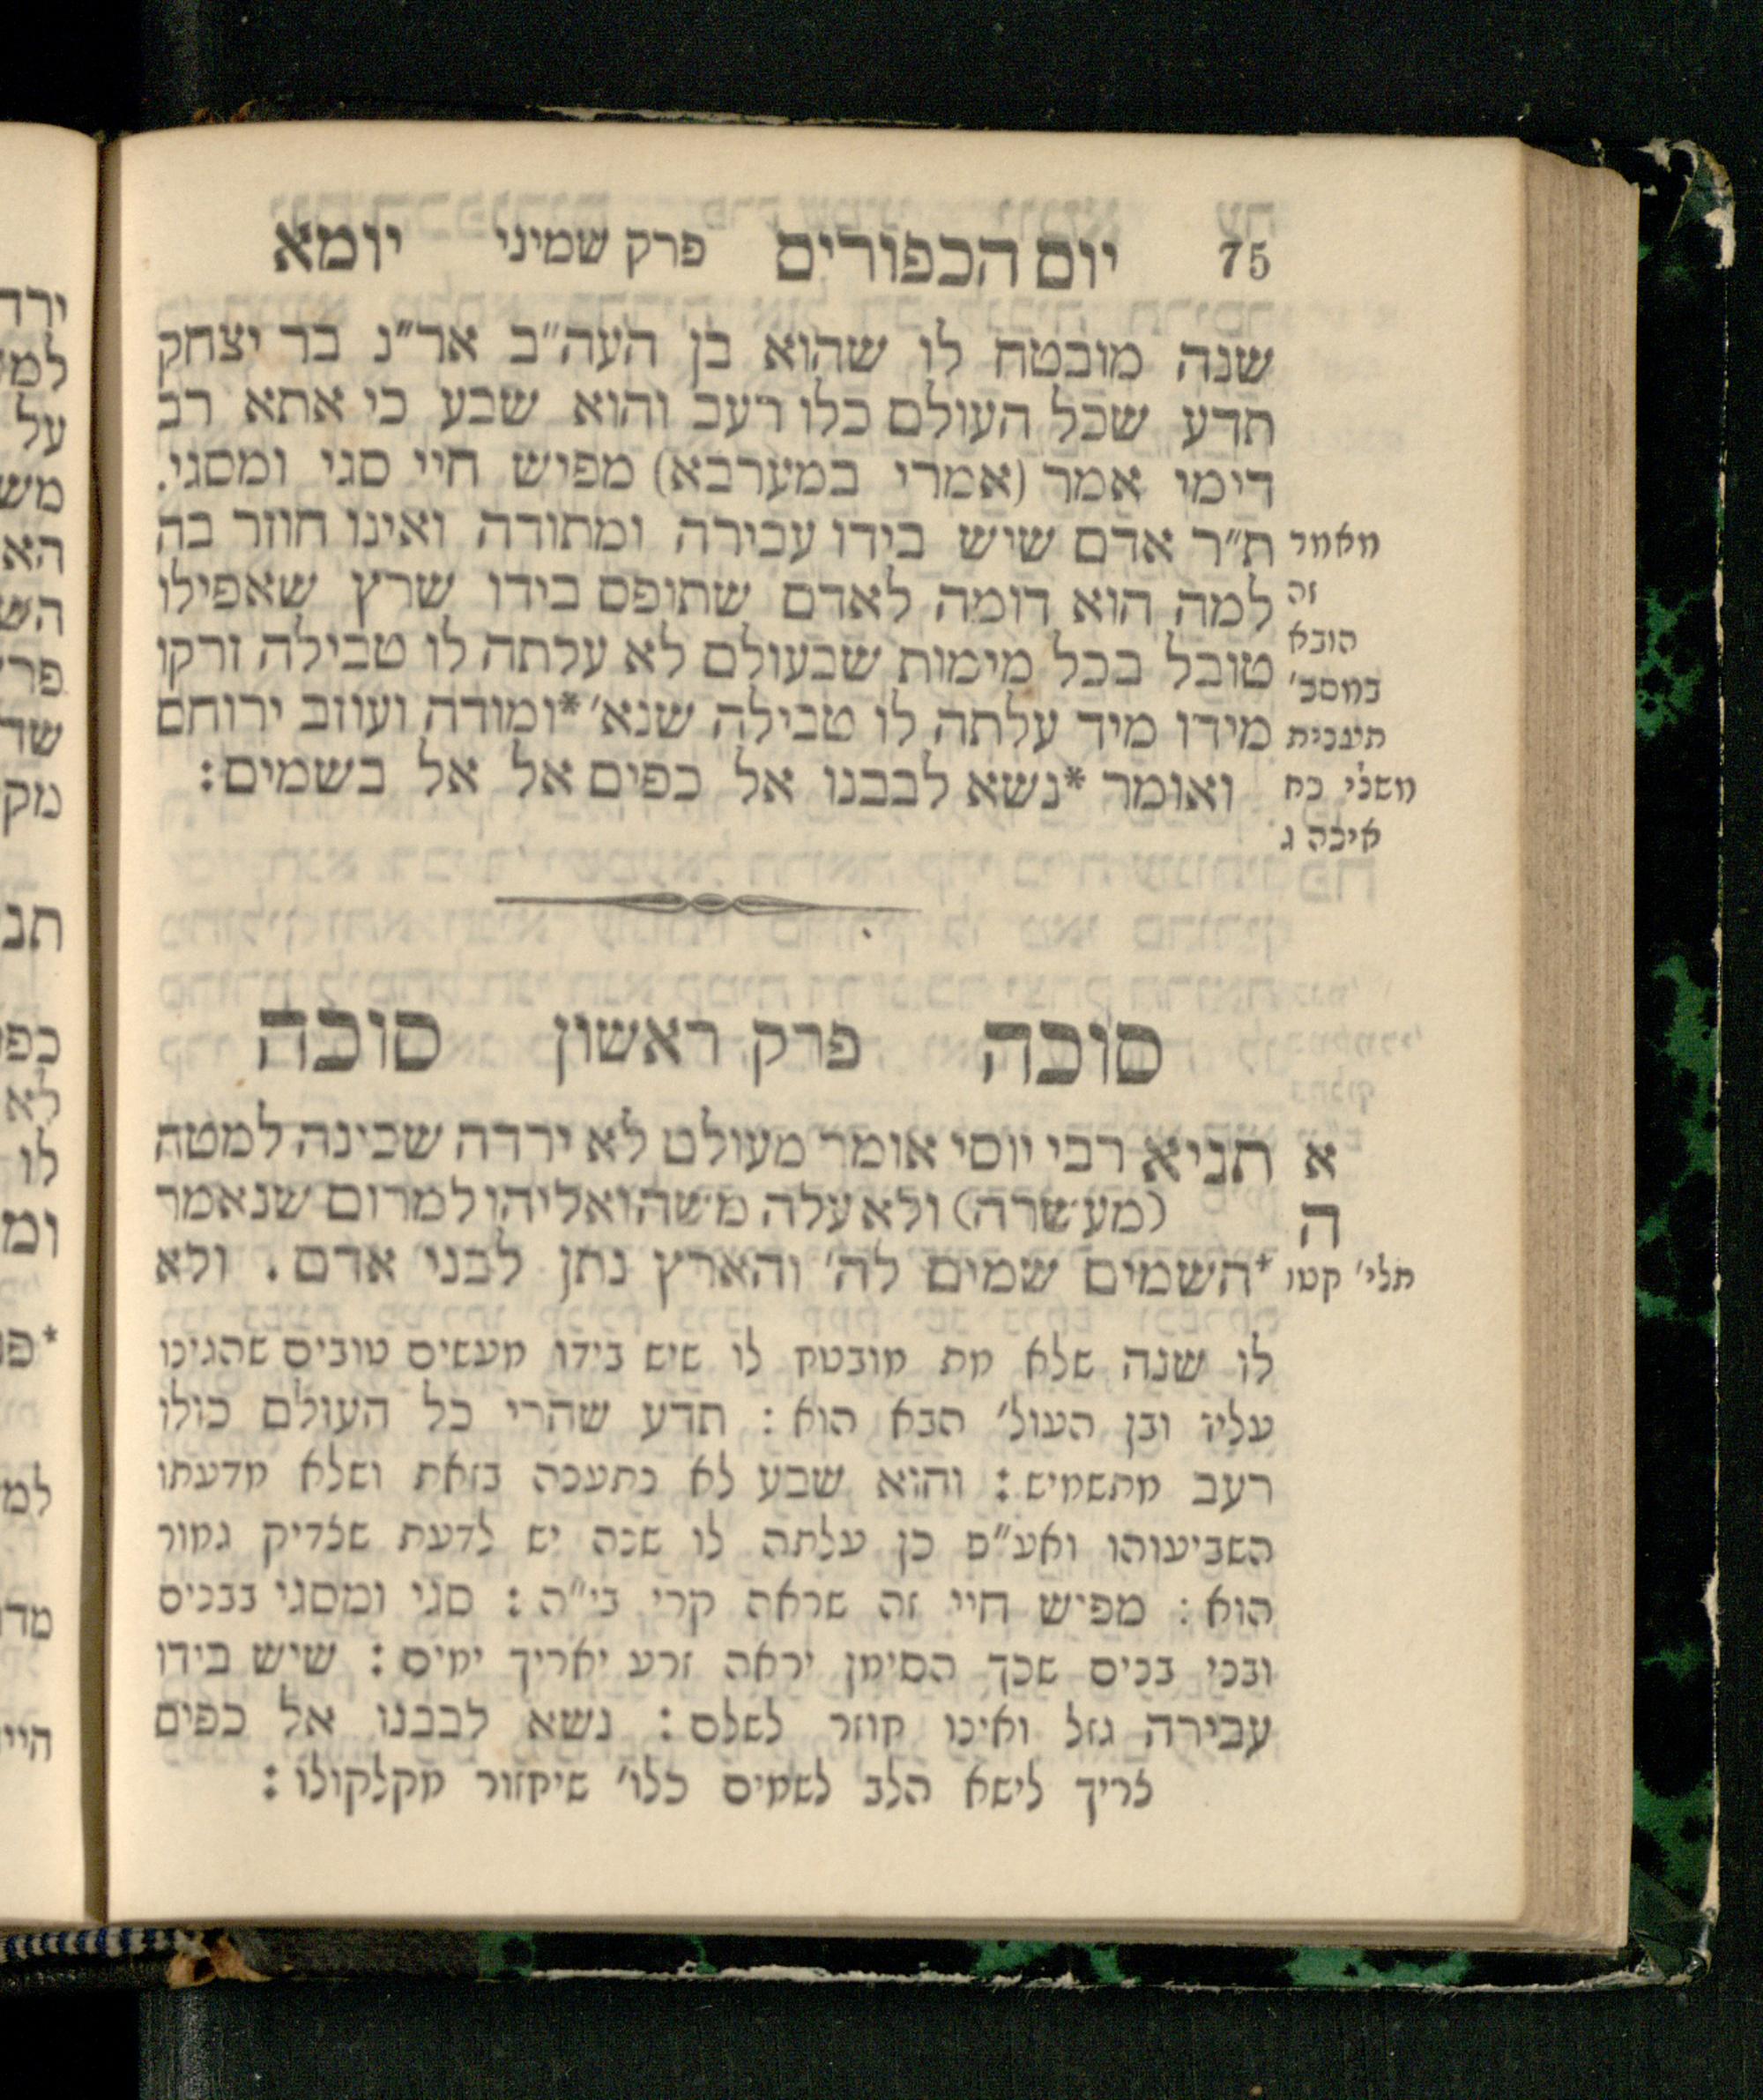 75 יום הכפורים פרק שמיני יומא
שנה מובטח לו שהוא בן העה״ב אר״נ בר יצחק
תדע שכל העולם כלו רעב והוא שבע כי אתא רב
דימי אמר (אמרי במערבא) מפיש חיי סגי ומסגי.
מאמר ת״ר אדם שיש בידו עבירה ומתודה ואינו חוזר בה
זה למה הוא דומה לאדם שתופס בידו שרץ שאפילו
הובא
טובל בכל מימות שבעולם לא עלתה לו טבילה זרקו
במסכ׳
תענית מידו מיד עלתה לו טבילה שנא׳ *ומודה ועוזב ירוחם
משלי כח ואומר *נשא לבבנו אל כפים אל אל בשמים:
איכה ג
סוכה פרק ראשון סוכה
א תניא רבי יוסי אומר מעולם לא ירדה שכינה למטה
ה (מעשרה) ולא עלה משה ואליהו למרום שנאמר
תלי׳ קטו *השמים שמים לה׳ והארץ נתן לבני אדם. ולא
לו שנה שלא מת מובטח לו שיש בידו מעשים טובים שהגינו
עליו ובן העול׳ הבא הוא: תדע שהרי כל העולם כולו
רעב מתשמיש: והוא שבע לא נתענה בזאת ושלא מדעתו
השביעוהו ואע״פ כן עלתה לו שנה יש לדעת שצדיק גמור
הוא: מפיש חיי זה שראה קרי בי״ה: סגי ומסגי בבנים
ובני בנים שכך הסימן יראה זרע יאריך ימים: שיש בידו
עבירה גזל ואינו חוזר לשלם: נשא לבבנו אל כפים
צריך לישא הלב לשמים כלו׳ שיחזור מקלקולו: